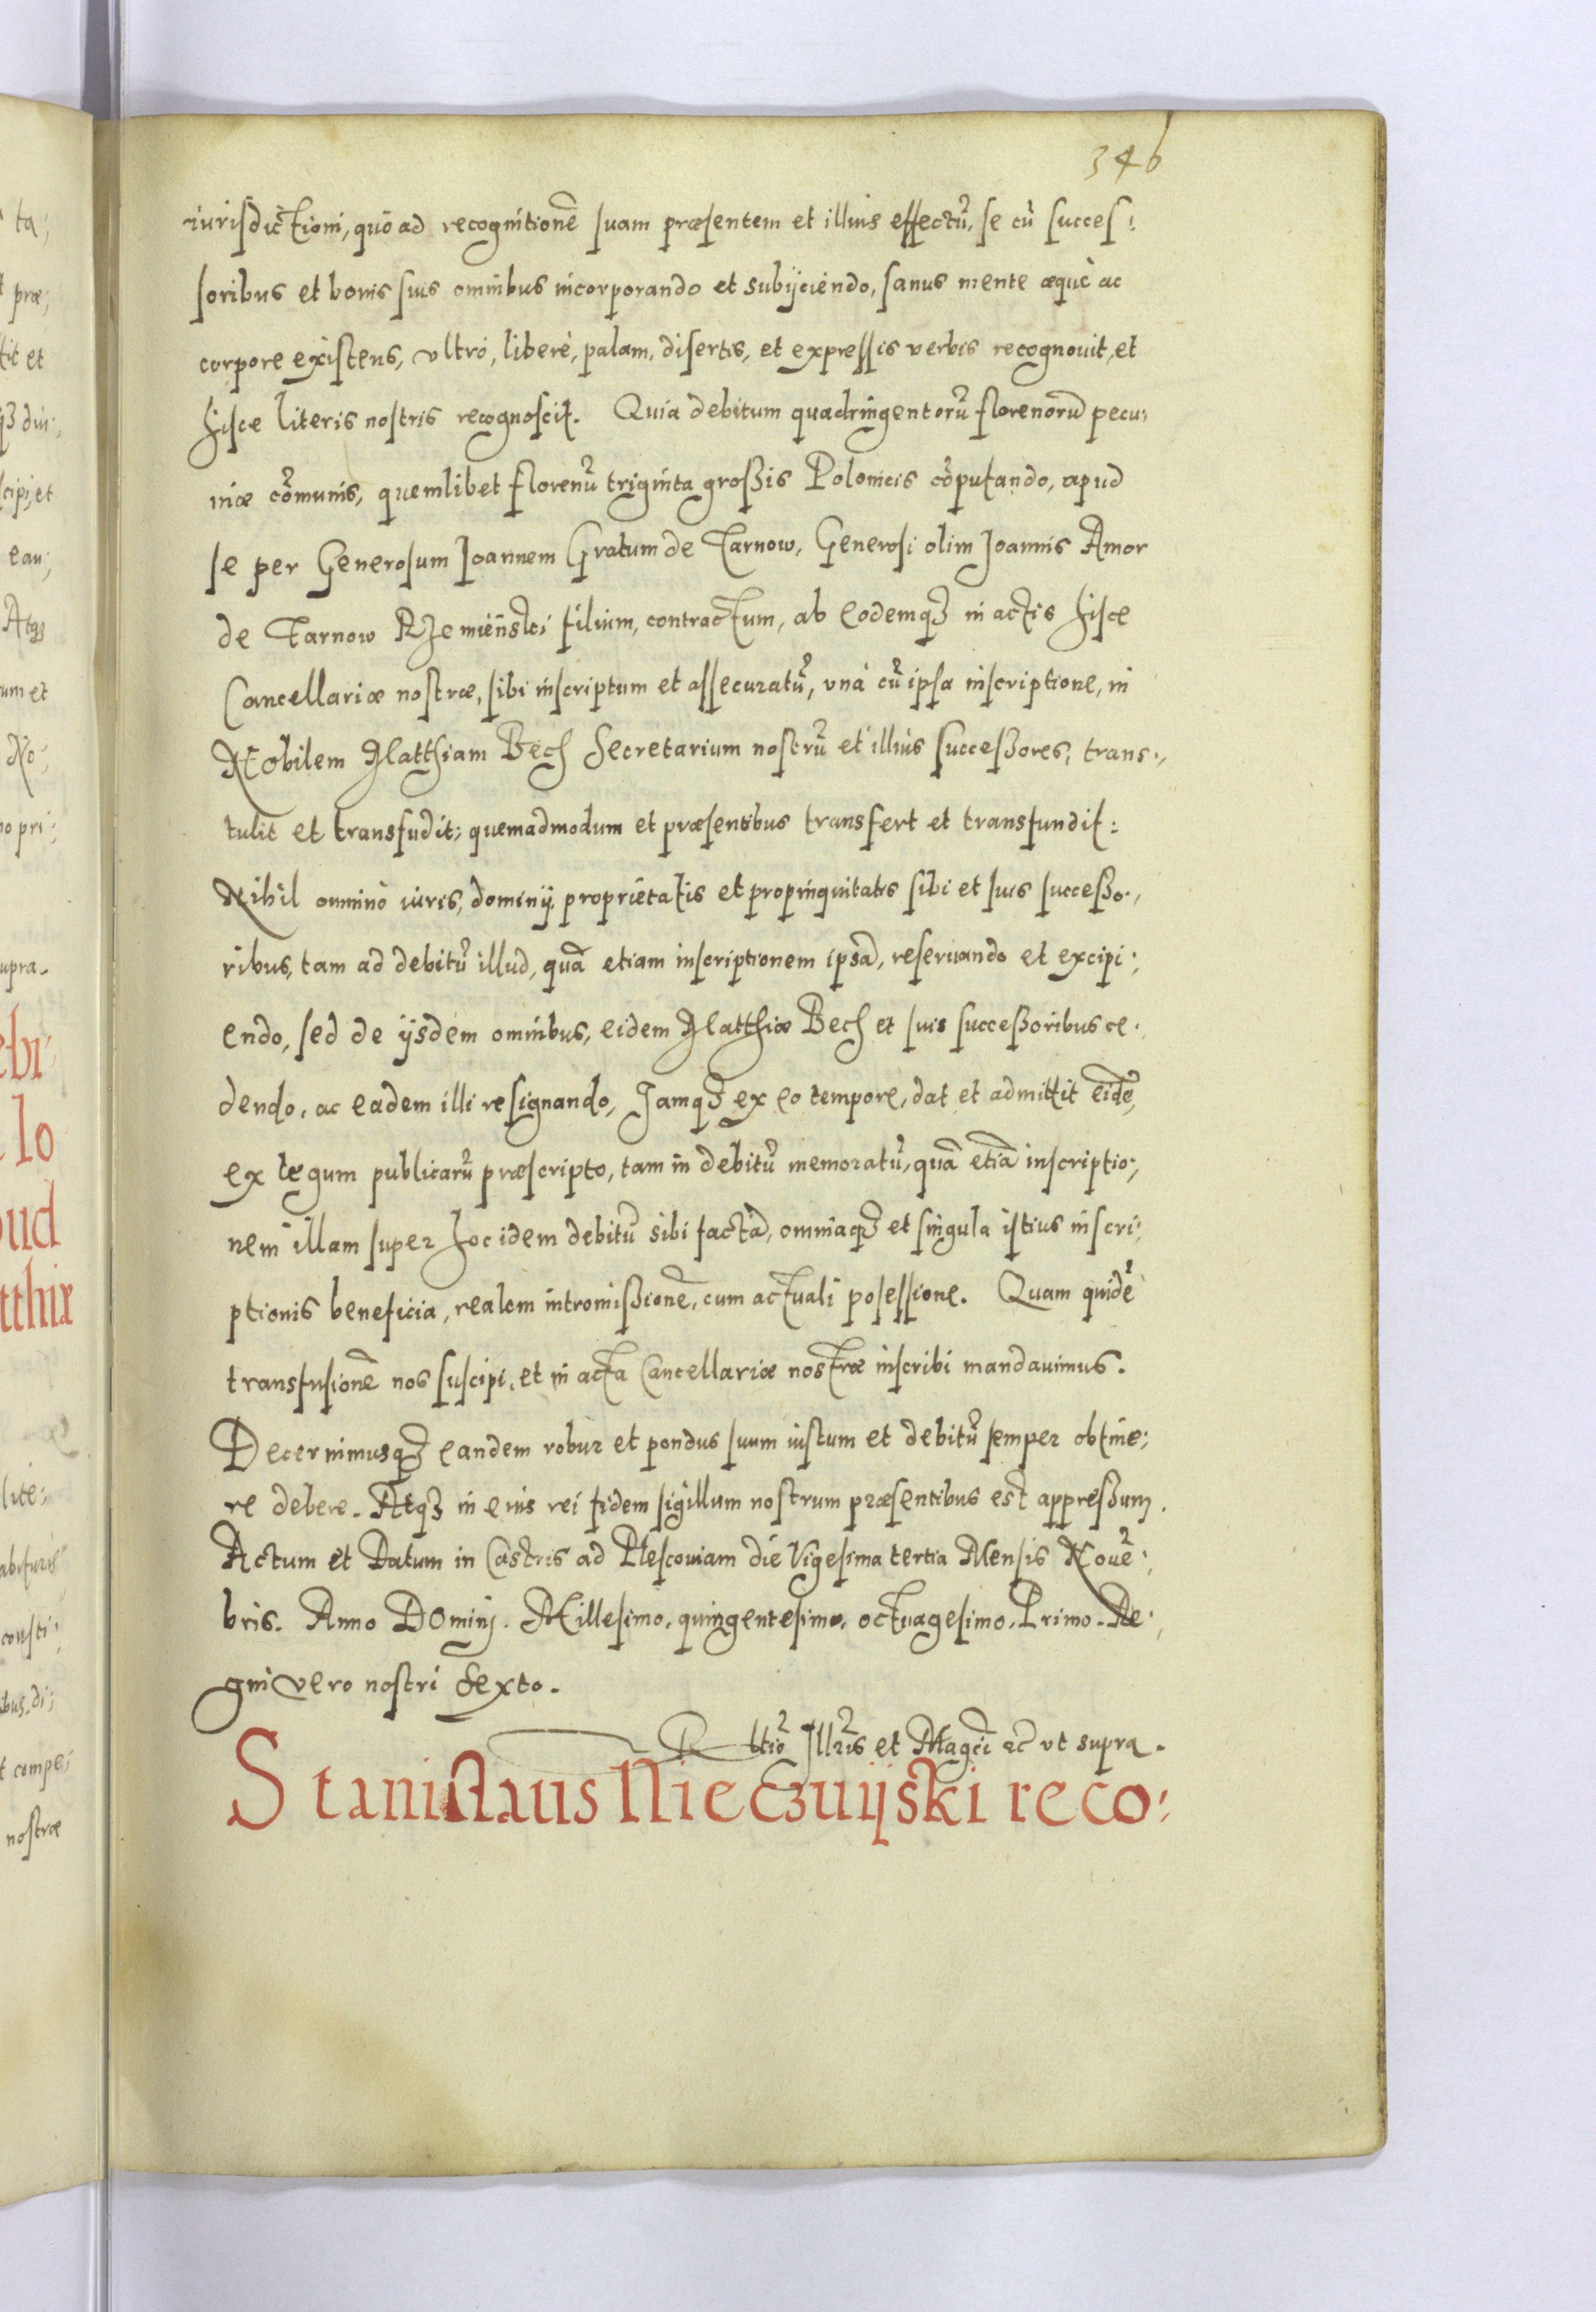 346
iurisdictioni, quo ad recognitionē suam præsentem et illius effectū, se cū succes:
soribus et bonis suis omnibus incorporando et subijciendo, sanus mente æque ac
corpore existens, vltrò, liberè, palam, disertis, et expressis verbis recognouit, et
hisce literis nostris recognoscit. Quia debitum quadringentorū florenorū pecu:
niæ cōmunis, quemlibet florenū triginta großis Polonicis cōputando, apud
se per Generosum Ioannem Gratum de Tarnow, Generosi olim Joannis Amor
de Tarnow Rzemieńskí filium, contractum, ab eodemqꝫ in actis hisce
Cancellariæ nostræ, sibi inscriptum et assecuratū, vnà cū ipsa inscriptione, in
Nobilem Matthiam Bech Secretarium nostrū et illius succeßores, trans:
tulit et transfudit; quemadmodum et præsentibus transfert et transfundit:
Nihil omninò iuris, dominij, proprietatis et propinquitatis sibi et suis succeßo:
ribus, tam ad debitū illud, quā etiam inscriptionem ipsā, reseruando et excipi:
endo, sed de ijsdem omnibus, eidem Matthiæ Bech et suis succeßoribus ce:
dendo, ac eadem illi resignando, Jamqꝫ ex eo tempore, dat et admittit eidē,
ex legum publicarū præscripto, tam in debitū memoratū, quā etiā inscriptio:
nem illam super hoc idem debitū sibi factā, omniaqꝫ et singula istius inscri:
ptionis beneficia, realem intromißionē, cum actuali posessione. Quam quidē
transfusionē nos suscipi, et in acta Cancellariæ nostræ inscribi mandauimus.
Decernimusqꝫ eandem robur et pondus suum iustum et debitū semper obtine:
re debere. Atqꝫ in eius rei fidem sigillum nostrum præsentibus est appreßum.
Actum et Datum in Castris ad Plescouiam die Vigesima tertia Mensis Nouē:
bris. Anno Dominj. Millesimo, quingentesimo, octuagesimo, Primo. Re:
gni vero nostri Sexto.
Rltio Illris et Magci etc vt supra.
Stanislaus Nieczuijski reco: